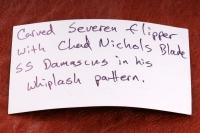 Carved Severen flipper
with Chad Nichols Blade
SS Damascus in his
whiplash pattern.